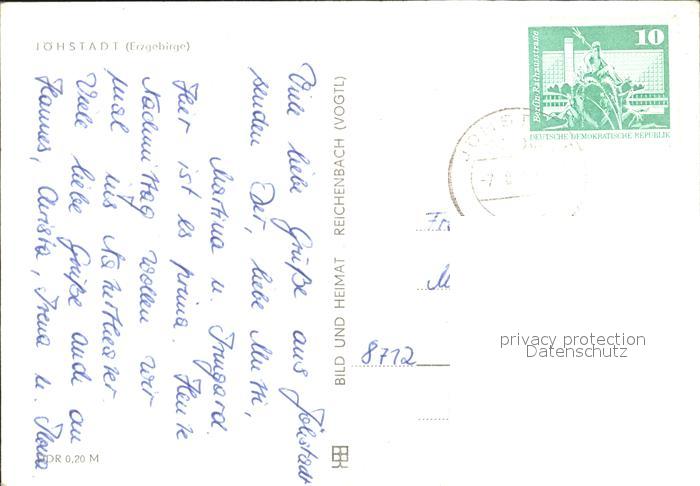 JÖHSTADT (Erzgebirge)
Viele liebe Grüße aus Jöhstadt
senden Dir, liebe Mutti,
Martina u. Irmgard.
Hier ist es prima. Heute
Nachmittag wollen wir
mal ins Naturtheater.
Viele liebe Grüße auch an
Hannes, Christa, Irena u. Ilona
DDR 0,20 M
BILD UND HEIMAT REICHENBACH (VOGTL)
10
Berlin-Rathausstraße
DEUTSCHE DEMOKRATISCHE REPUBLIK
Fr
M
8712
privacy protection
Datenschutz